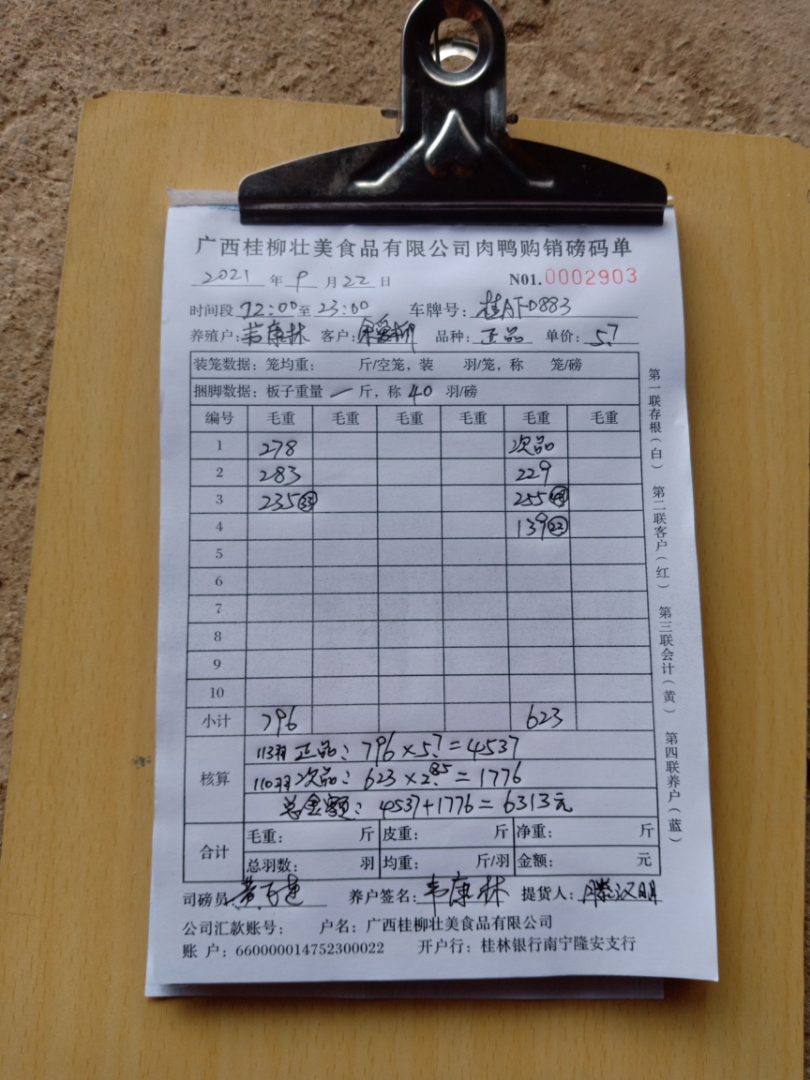 广西桂柳壮美食品有限公司肉鸭购销磅码单
2021 年 9 月 22 日 N01.0002903
时间段 12:00 至 23:00 车牌号: 桂AT0883
养殖户: 韦康林 客户: 品种: 正品 单价: 5.7
装笼数据: 笼均重: 斤/空笼, 装 羽/笼, 称 笼/磅
捆脚数据: 板子重量 一 斤, 称 40 羽/磅
编号 毛重 毛重 毛重 毛重 毛重 毛重
1 278 次品
2 283 229
3 235 33 255 48
4 139 22
5
6
7
8
9
10
小计 796 623
核算 113羽 正品: 796×5.7=4537
110羽 次品: 623×2.85=1776
总金额: 4537+1776=6313元
合计 毛重: 斤 皮重: 斤 净重: 斤
总羽数: 羽 均重: 斤/羽 金额: 元
司磅员 养户签名: 韦康林 提货人: 滕汉明
公司汇款账号: 户名: 广西桂柳壮美食品有限公司
账 户: 660000014752300022 开户行: 桂林银行南宁隆安支行
第一联存根(白) 第二联客户(红) 第三联会计(黄) 第四联养户(蓝)